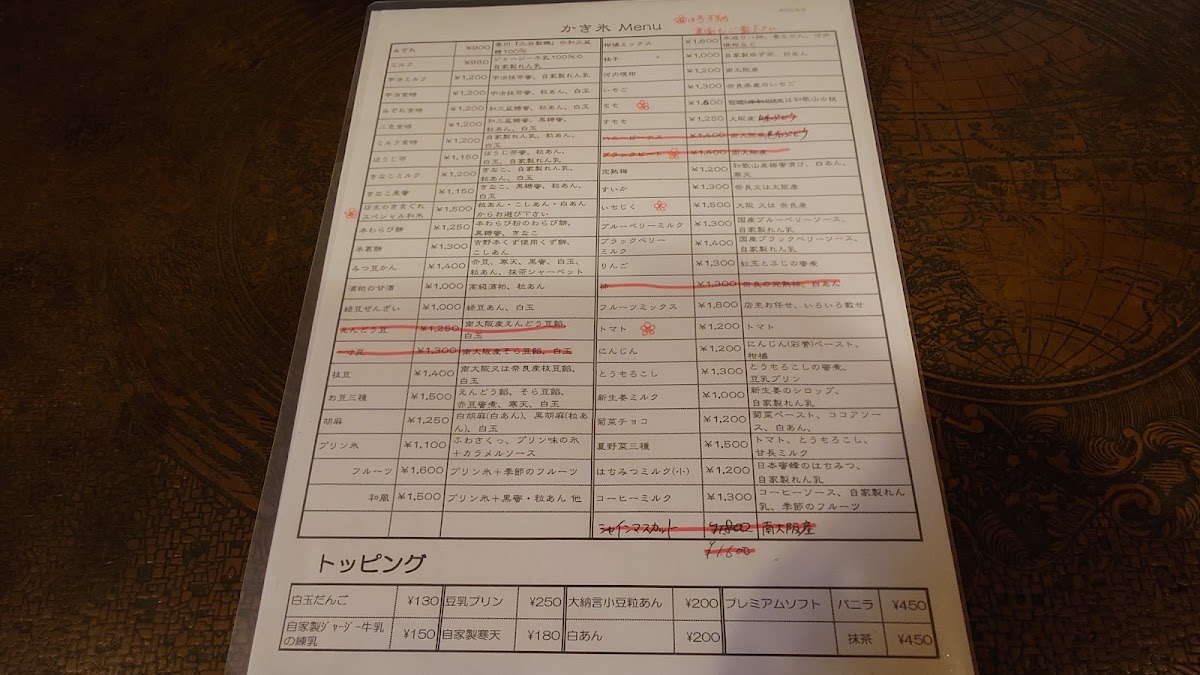 かき氷 Menu
みぞれ ¥900 香川「三谷製糖」の和三盆
糖100%
ミルク ¥950 ジャージー牛乳100%の
自家製れん乳
宇治ミルク ¥1,200 宇治抹茶蜜、自家製れん乳
宇治金時 ¥1,200 宇治抹茶蜜、粒あん、白玉
みぞれ金時 ¥1,200 和三盆糖蜜、粒あん、白玉
三色金時 ¥1,200 和三盆糖蜜、黒糖蜜、
粒あん、白玉
ミルク金時 ¥1,200 自家製れん乳、粒あん、
白玉
ほうじ茶 ¥1,150 ほうじ茶蜜、粒あん、
白玉、自家製れん乳
きなこミルク ¥1,200 きなこ、自家製れん乳、
粒あん、白玉
きなこ黒蜜 ¥1,150 きなこ、黒糖蜜、粒あん、
白玉
店主のきまぐれ
スペシャル和氷 ¥1,500 粒あん・こしあん・白あん
からお選び下さい
本わらび餅 ¥1,250 本わらび粉のわらび餅、
黒糖蜜、きなこ
本葛餅 ¥1,300 吉野本くず使用くず餅、
こしあん
みつ豆かん ¥1,400 赤豆、寒天、黒蜜、白玉、
粒あん、抹茶シャーベット
酒粕の甘酒 ¥1,000 高級酒粕、粒あん
緑豆ぜんざい ¥1,000 緑豆あん、白玉
えんどう豆 ¥1,250 南大阪産えんどう豆餡、
白玉
一寸豆 ¥1,300 南大阪産そら豆餡、白玉
枝豆 ¥1,400 南大阪又は奈良産枝豆餡、
白玉
お豆三種 ¥1,500 えんどう餡、そら豆餡、
赤豆蜜煮、寒天、白玉
胡麻 ¥1,250 白胡麻(白あん)、黒胡麻(粒あ
ん)、白玉
プリン氷 ¥1,100 ふわさくっ、プリン味の氷
+カラメルソース
フルーツ ¥1,600 プリン氷+季節のフルーツ
和風 ¥1,500 プリン氷+黒蜜・粒あん 他
柑橘ミックス ¥1,600
柚子 ¥1,000 自家製ゆず蜜、白あん
河内晩柑 ¥1,200 南大阪産
いちご ¥1,300 奈良県産のいちご
モモ ¥1,600 又は和歌山の桃
すもも ¥1,250 大阪産
ハニービーナス ¥1,400 南大阪産
ブラックビート ¥1,400 南大阪産
完熟梅 ¥1,200 和歌山産梅蜜漬け、白あん、
寒天
すいか ¥1,300 奈良又は大阪産
いちじく ¥1,500 大阪 又は 奈良産
ブルーベリーミルク ¥1,300 国産ブルーベリーソース、
自家製れん乳
ブラックベリー
ミルク ¥1,400 国産ブラックベリーソース、
自家製れん乳
りんご ¥1,300 紅玉とふじの蜜煮
柿 ¥1,300 奈良の完熟柿、白あん
フルーツミックス ¥1,800 店主お任せ、いろいろ載せ
トマト ¥1,200 トマト
にんじん ¥1,200 にんじん(彩誉)ペースト、
柑橘
とうもろこし ¥1,300 とうもろこしの蜜煮、
豆乳プリン
新生姜ミルク ¥1,000 新生姜のシロップ、
自家製れん乳
菊菜チョコ ¥1,200 菊菜ペースト、ココアソー
ス、白あん、
夏野菜三種 ¥1,500 トマト、とうもろこし、
甘長ミルク
はちみつミルク(小) ¥1,200 日本蜜蜂のはちみつ、
自家製れん乳
コーヒーミルク ¥1,300 コーヒーソース、自家製れん
乳、季節のフルーツ
シャインマスカット ¥1,800 南大阪産
¥1,600
トッピング
白玉だんご ¥130 豆乳プリン ¥250 大納言小豆粒あん ¥200 プレミアムソフト バニラ ¥450
自家製ジャージー牛乳
の練乳 ¥150 自家製寒天 ¥180 白あん ¥200 抹茶 ¥450